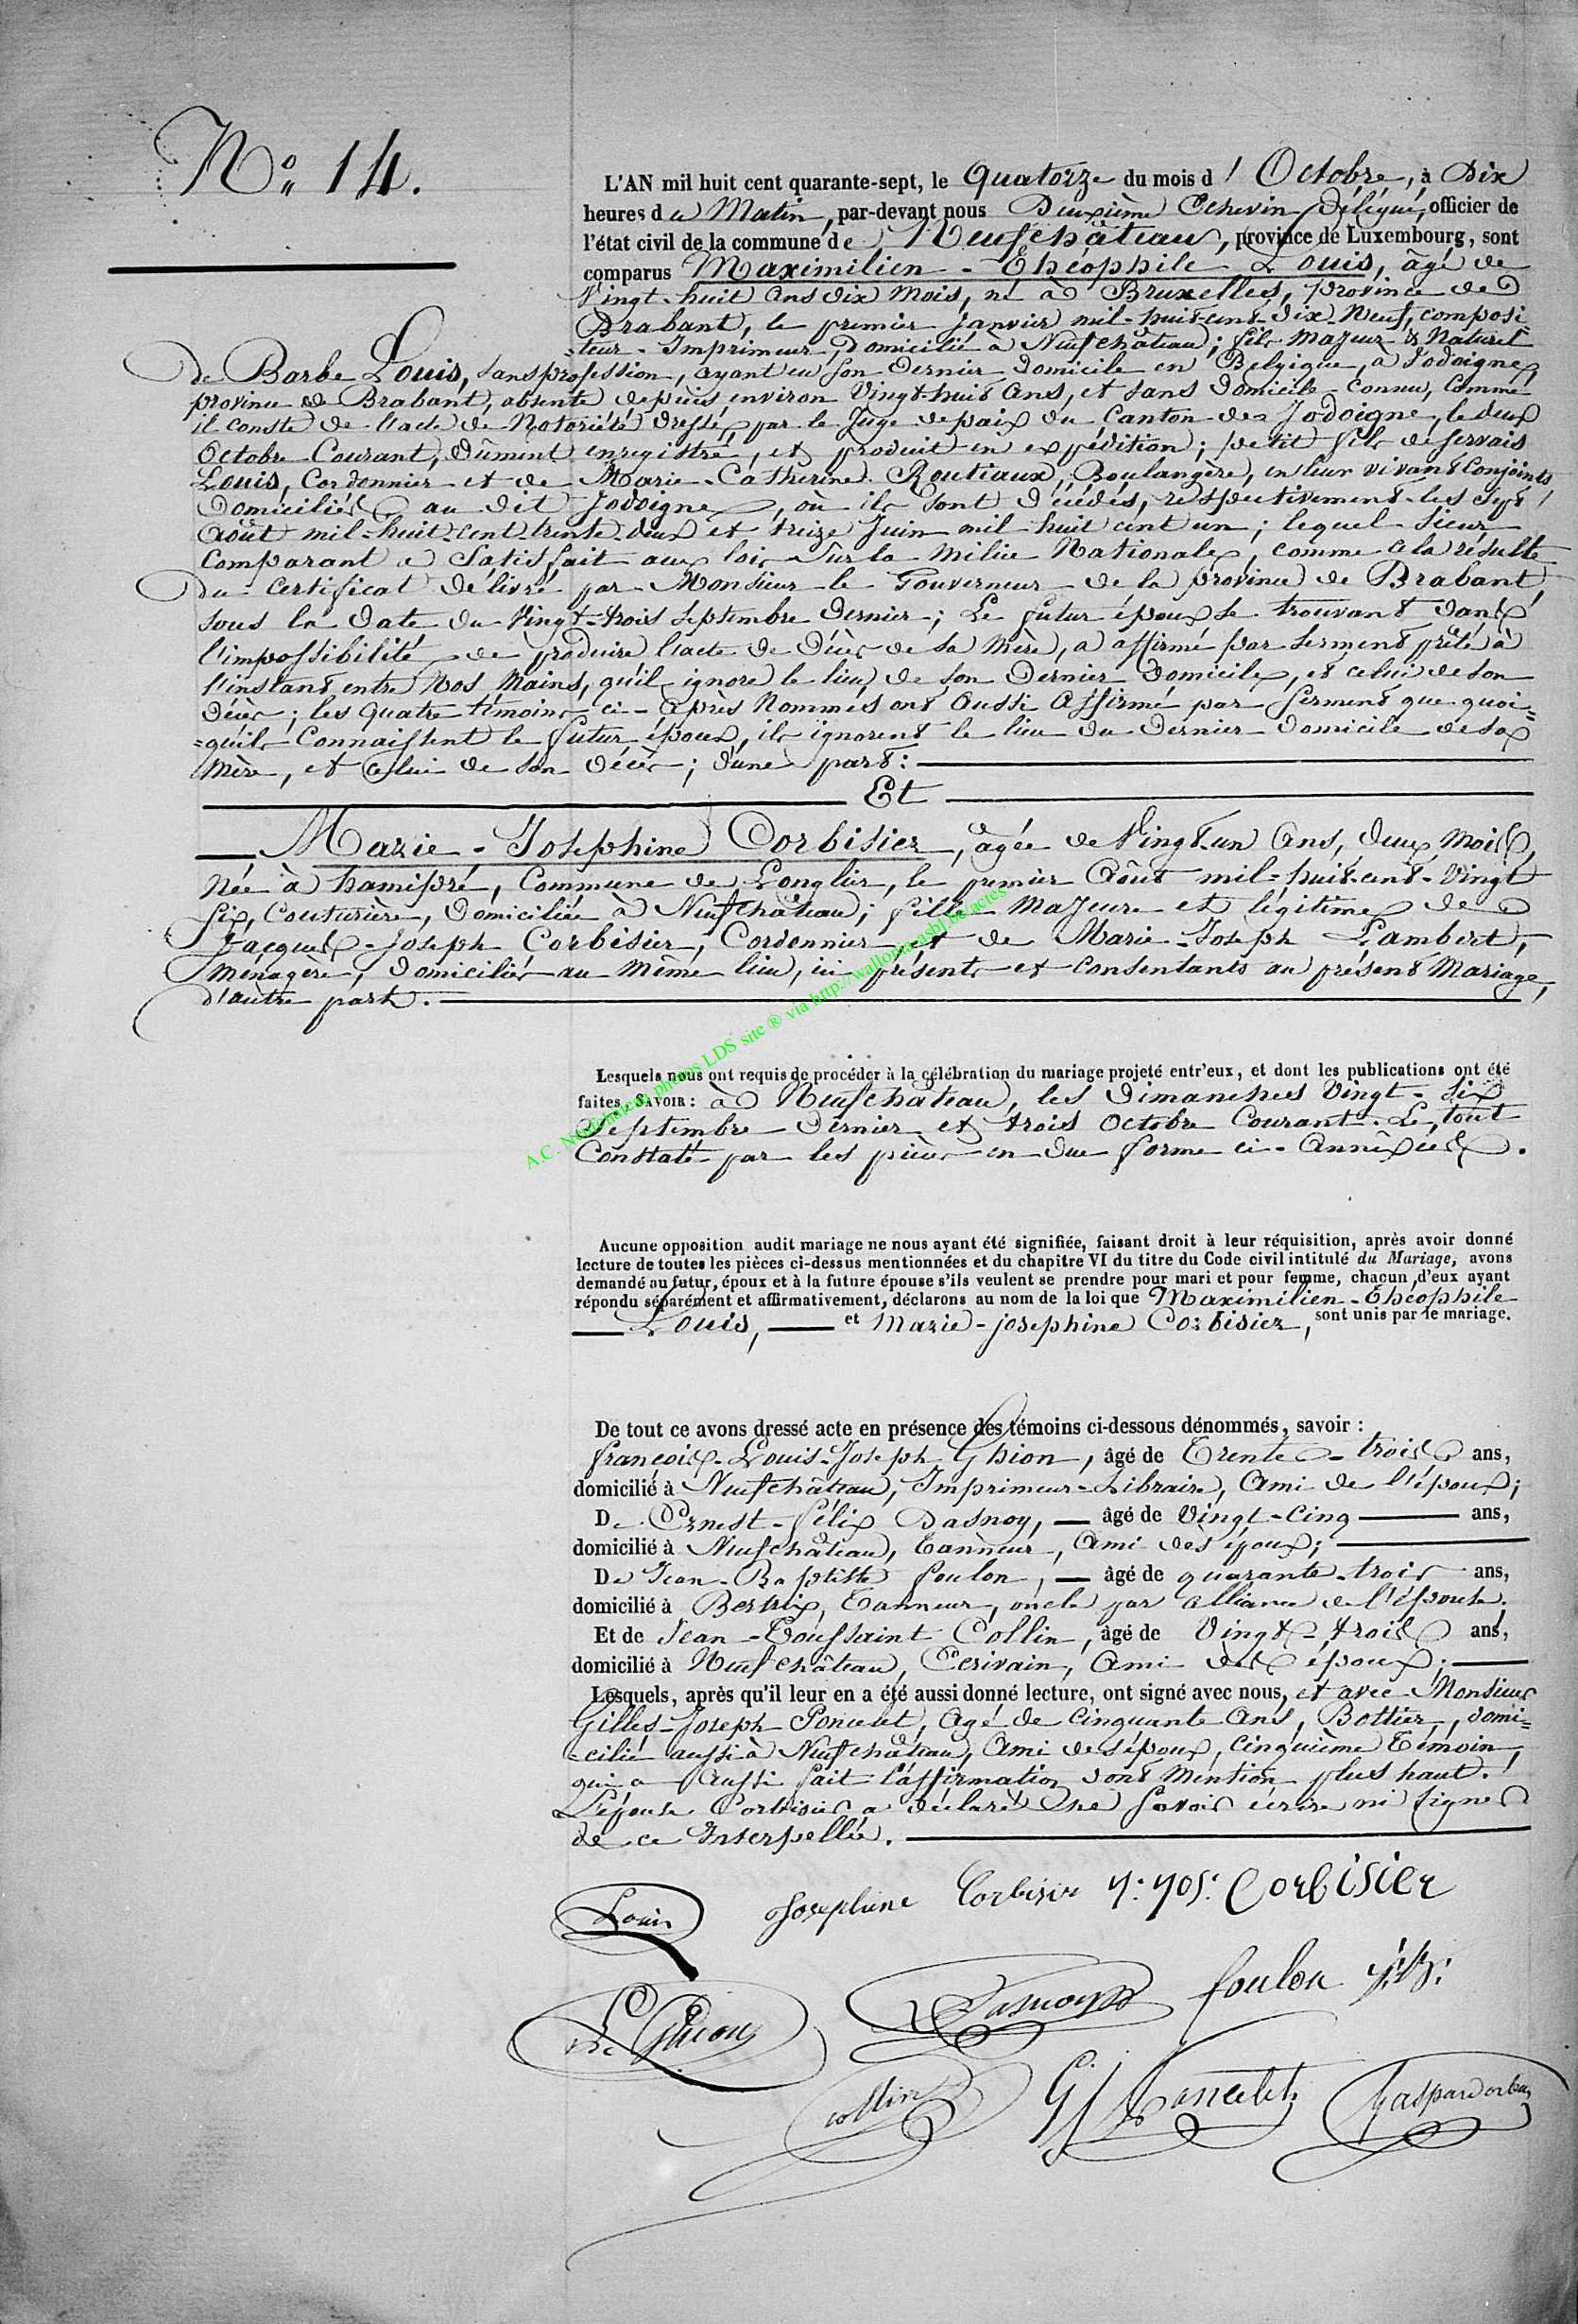 N° 14.
L'AN mil huit cent quarante-sept, le Quatorze du mois d'Octobre, à Dix
heures du Matin, par-devant nous Deuxième Echevin Délégué, officier de
l'état civil de la commune de Neufchâteau, province de Luxembourg, sont
comparus Maximilien-Théophile Louis, âgé de
Vingt-huit Ans dix Mois, né à Bruxelles, province de
Brabant, le premier Janvier mil-huit-cent-dix-Neuf, composi-
-teur-Imprimeur, Domicilié à Neufchâteau; fils Majeur & Naturel
De Barbe Louis, sans profession, ayant eu son Dernier Domicile en Belgique, à Jodoigne,
province de Brabant, absente depuis environ Vingt-huit Ans, et sans Domicile connu, Comme
il conste de l'acte de Notoriété dressé par le Juge de paix du Canton de Jodoigne, le deux
Octobre Courant, Dûment enregistré, et produit en expédition; petit fils de Servais
Louis, Cordonnier et de Marie-Catherine Routiaux, Boulangère, en leur vivant Conjoints
Domiciliés au dit Jodoigne, où ils sont Décédés, respectivement les Sept
Août mil-huit-cent-trente-deux et treize Juin mil huit cent un; lequel Sieur
Comparant a Satisfait aux lois Sur la Milice Nationale, comme cela résulte
Du Certificat délivré par Monsieur le Gouverneur de la province de Brabant,
sous la Date du Vingt-trois Septembre Dernier; Le futur époux se trouvant dans
l'impossibilité de produire l'acte de Décès de sa Mère, a affirmé par Serment prêté à
l'instant entre Nos Mains, qu'il ignore le lieu de son Dernier Domicile, et celui de son
Décès; les Quatre témoins ci-après Nommés ont Aussi Affirmé par Serment que quoi-
-qu'ils Connaissent le futur époux, ils ignorent le lieu du Dernier Domicile de sa
Mère, et celui de son Décès; d'une part:
Et
Marie-Josephine Corbisier, âgée de Vingt-un Ans, deux Mois,
Née à hamipré, Commune de Longlier, le premier Août mil-huit-cent-Vingt
Six, Couturière, Domiciliée à Neufchâteau; fille Majeure et légitime de
Jacques-Joseph Corbisier, Cordonnier, et de Marie-Joseph Lambert,
Ménagère, domiciliés au Même lieu, ici présents et Consentants au présent Mariage,
d'autre part.
Lesquels nous ont requis de procéder à la célébration du mariage projeté entr'eux, et dont les publications ont été
faites, SAVOIR: à Neufchâteau, les Dimanches Vingt-six
Septembre Dernier et trois Octobre Courant. Le tout
Constaté par les pièces en due forme ci-Annexées.
Aucune opposition audit mariage ne nous ayant été signifiée, faisant droit à leur réquisition, après avoir donné
lecture de toutes les pièces ci-dessus mentionnées et du chapitre VI du titre du Code civil intitulé du Mariage, avons
demandé au futur, époux et à la future épouse s'ils veulent se prendre pour mari et pour femme, chacun d'eux ayant
répondu séparément et affirmativement, déclarons au nom de la loi que Maximilien-Théophile
Louis, et Marie-josephine Corbisier, sont unis par le mariage.
De tout ce avons dressé acte en présence des témoins ci-dessous dénommés, savoir:
François-Louis-Joseph Ghion, âgé de Trente-trois ans,
domicilié à Neufchâteau, Imprimeur-Libraire, Ami de l'époux;
De Ernest-Félix Dasnoy, âgé de Vingt-Cinq ans,
domicilié à Neufchâteau, Tanneur, Ami des époux;
De Jean-Baptiste Foulon, âgé de quarante-trois ans,
domicilié à Bertrix, Tanneur, oncle par alliance de l'épouse.
Et de Jean-Toussaint Collin, âgé de Vingt-trois ans,
domicilié à Neufchâteau, Ecrivain, Ami des époux;
Lesquels, après qu'il leur en a été aussi donné lecture, ont signé avec nous, et avec Monsieur
Gilles-Joseph Poncelet, Agé de Cinquante Ans, Bottier, domi-
-cilié aussi à Neufchâteau, Ami des époux, Cinquième Témoin,
qui a Aussi fait l'affirmation dont Mention plus haut.
L'épouse Corbisier a déclaré Ne savoir écrire ni signer
de ce Interpellée.
Louis Josephine Corbisier J: Jos: Corbisier
L Ghion Dasnoy foulon j:b:
Collin G J Poncelet Gaspard
A.C. Neufchâteau photos LDS site ® via http://wallonia-asbl.be/actes